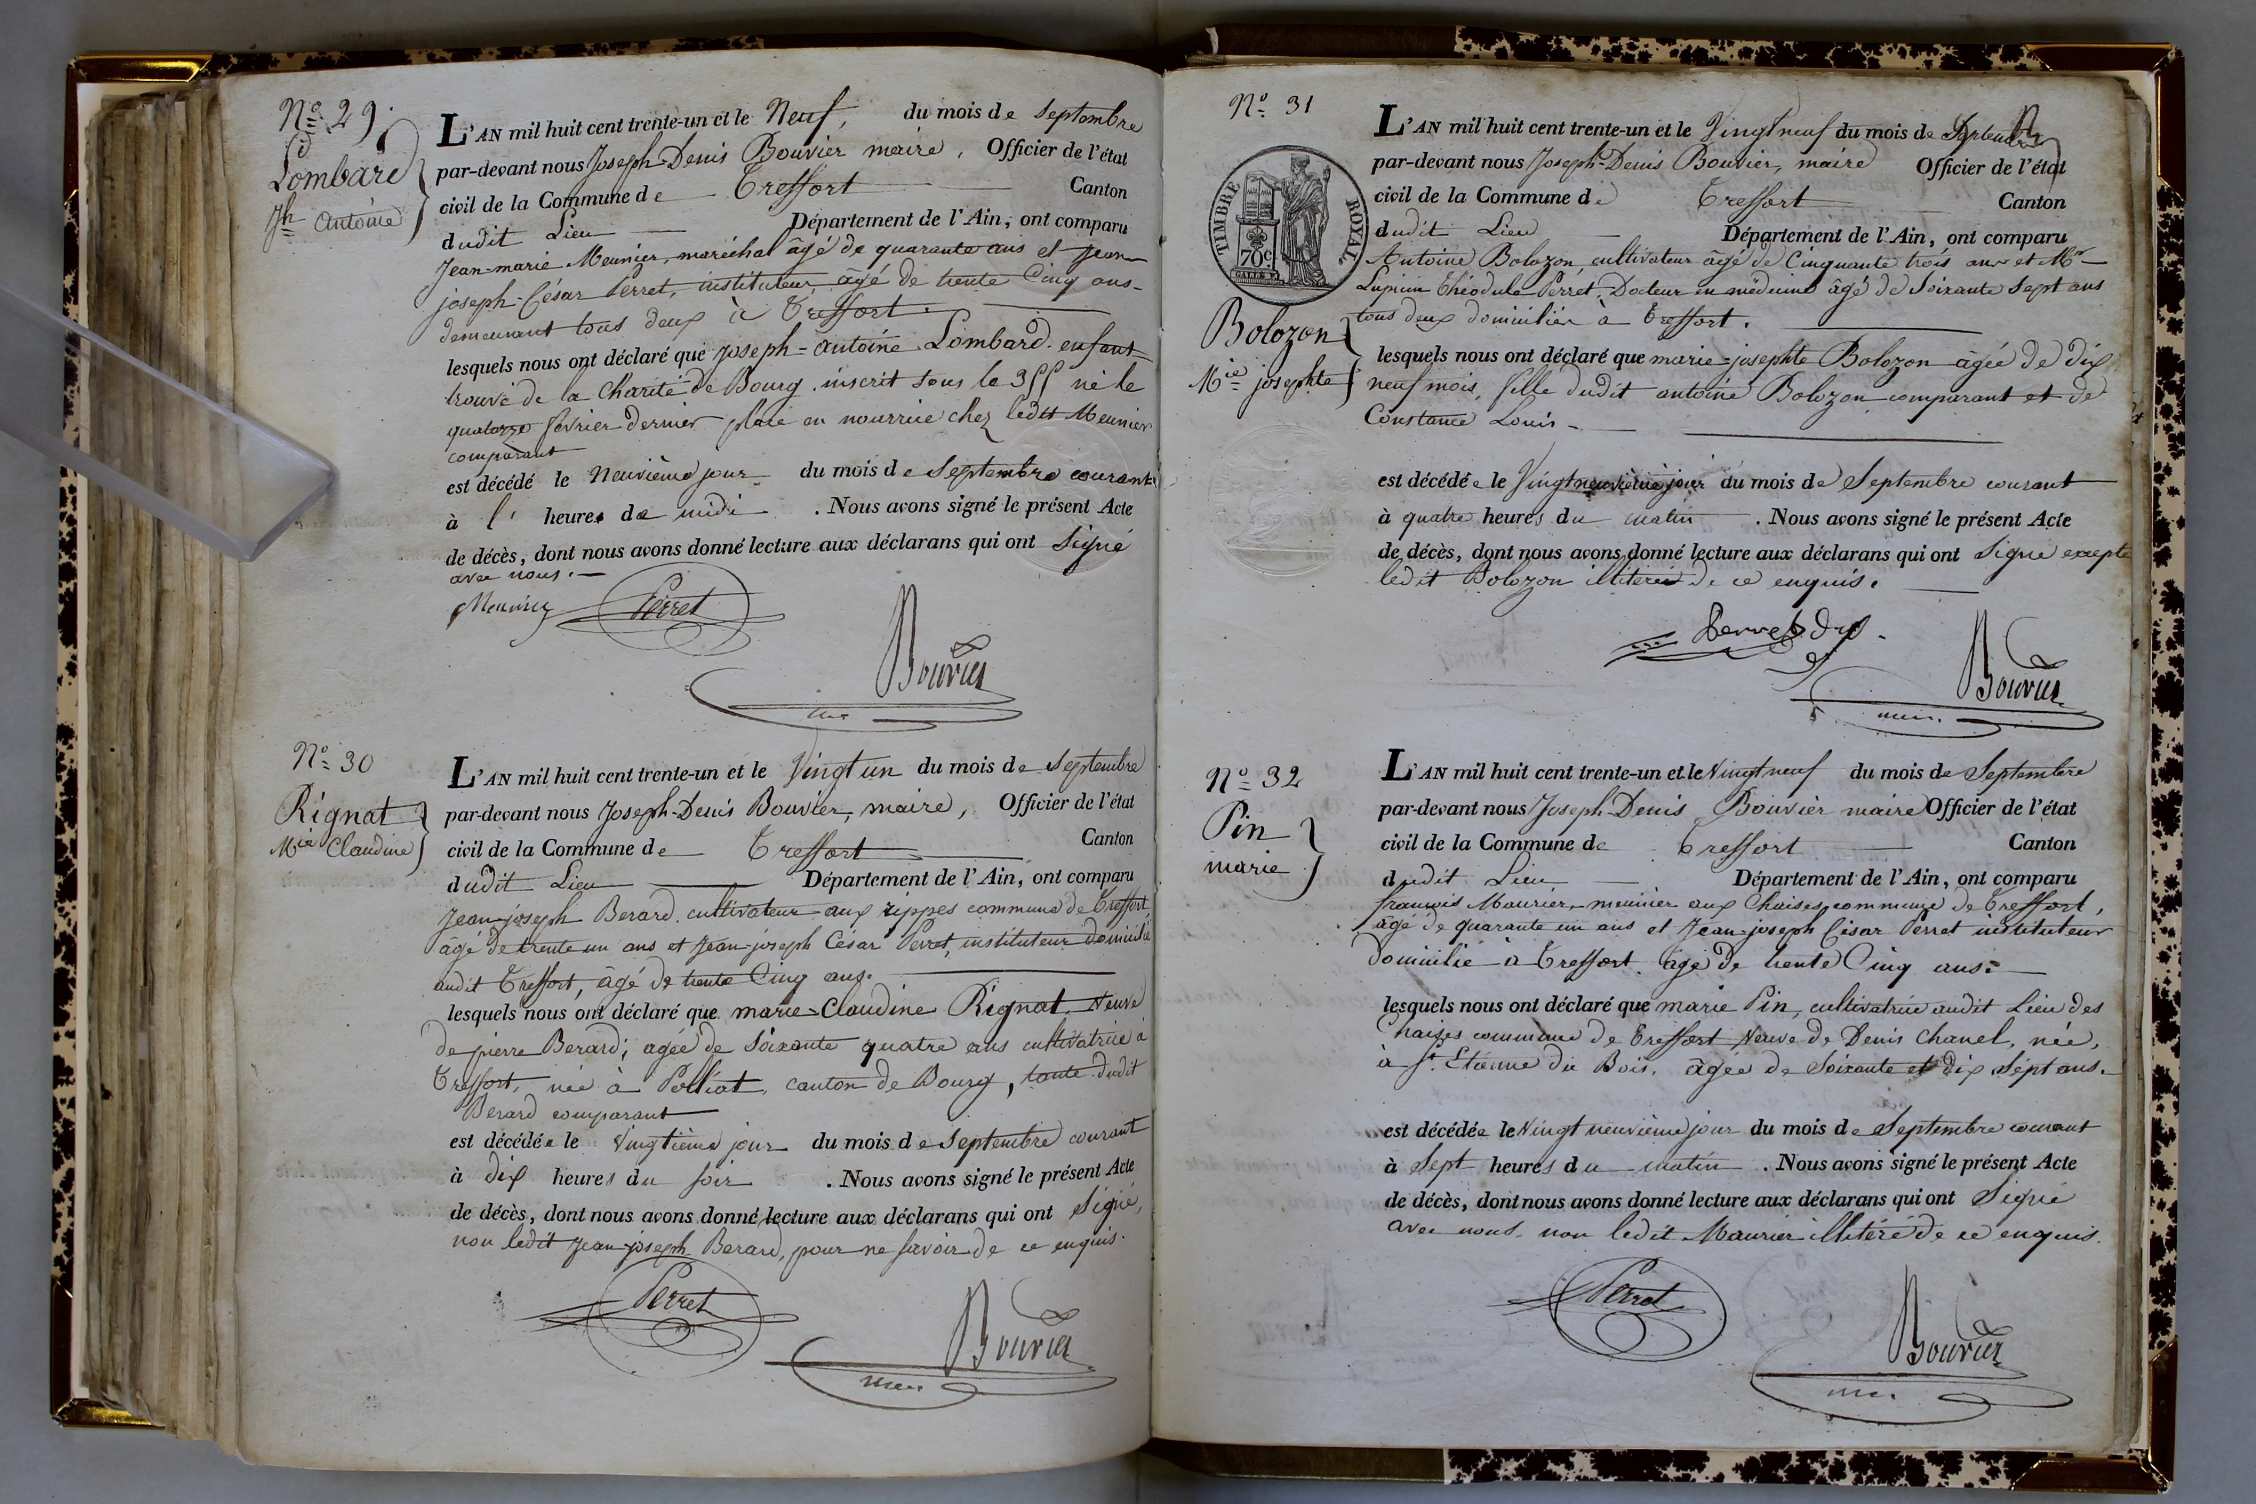 No 29.
Lombard
Jh Antoine
L'AN mil huit cent trente-un et le Neuf, du mois de Septembre
par-devant nous Joseph-Denis Bouvier maire, Officier de l'état
civil de la Commune de Treffort Canton
dudit Lieu Département de l'Ain, ont comparu
Jean-marie Meunier, maréchal âgé de quarante ans et Jean
joseph-César Perret, instituteur âgé de trente Cinq ans
demeurant tous deux à Treffort.
lesquels nous ont déclaré que Joseph-Antoine Lombard enfant
trouvé de la Charité de Bourg, inscrit sous le né le
quatorze février dernier placé en nourrice chez ledit Meunier
comparant
est décédé le Neuvième jour du mois de Septembre courant
à l' heure de midi. Nous avons signé le présent Acte
de décès, dont nous avons donné lecture aux déclarans qui ont Signé
avec nous.
Meunier Perret
Bouvier
No 30
Rignat
Mie Claudine
L'AN mil huit cent trente-un et le Vingt un du mois de Septembre
par-devant nous Joseph-Denis Bouvier, maire, Officier de l'état
civil de la Commune de Treffort Canton
dudit Lieu Département de l'Ain, ont comparu
Jean-joseph Berard, cultivateur aux rippes commune de Treffort
âgé de trente un ans et Jean-joseph César Perret, instituteur domicilié
audit Treffort, âgé de trente Cinq ans.
lesquels nous ont déclaré que marie-Claudine Rignat, Veuve
de pierre Berard; agée de Soixante quatre ans cultivatrice à
Treffort, née à Polliat, canton de Bourg, tante dudit
Berard comparant
est décédée le Vingtième jour du mois de Septembre courant
à dix heures du soir. Nous avons signé le présent Acte
de décès, dont nous avons donné lecture aux déclarans qui ont Signé,
non ledit Jean-joseph Berard, pour ne savoir de ce enquis.
Perret
Bouvier
No 31
TIMBRE ROYAL
70c
Bolozon
Mie josephte
L'AN mil huit cent trente-un et le Vingt neuf du mois de Septembre
par-devant nous Joseph-Denis Bouvier, maire Officier de l'état
civil de la Commune de Treffort Canton
dudit Lieu Département de l'Ain, ont comparu
Antoine Bolozon, cultivateur âgé de Cinquante trois ans et Mr
Lupicin Théodule Perret, Docteur en médecine âgé de Soixante Sept ans
tous deux domiciliés à Treffort.
lesquels nous ont déclaré que marie-josephte Bolozon agée de dix
neuf mois, fille dudit antoine Bolozon comparant et de
Constance Louis
est décédée le Vingt neuvième jour du mois de Septembre courant
à quatre heures du matin. Nous avons signé le présent Acte
de décès, dont nous avons donné lecture aux déclarans qui ont Signé excepté
ledit Bolozon illitéré de ce enquis.
Perret
Bouvier
No 32
Pin
marie
L'AN mil huit cent trente-un et le Vingt neuf du mois de Septembre
par-devant nous Joseph-Denis Bouvier maire Officier de l'état
civil de la Commune de Treffort Canton
dudit Lieu Département de l'Ain, ont comparu
françois Maurier, meunier aux Chaises, commune de Treffort,
âgé de quarante un ans et Jean-joseph César Perret instituteur
domicilié à Treffort, âgé de trente Cinq ans.
lesquels nous ont déclaré que marie Pin, cultivatrice audit Lieu des
Chaises commune de Treffort Veuve de Denis Chanel, née,
à St. Etienne du Bois, âgée de Soixante et dix Sept ans.
est décédée le Vingt neuvième jour du mois de Septembre courant
à Sept heures du matin. Nous avons signé le présent Acte
de décès, dont nous avons donné lecture aux déclarans qui ont Signé
avec nous, non ledit Maurier illitéré de ce enquis.
Perret
Bouvier